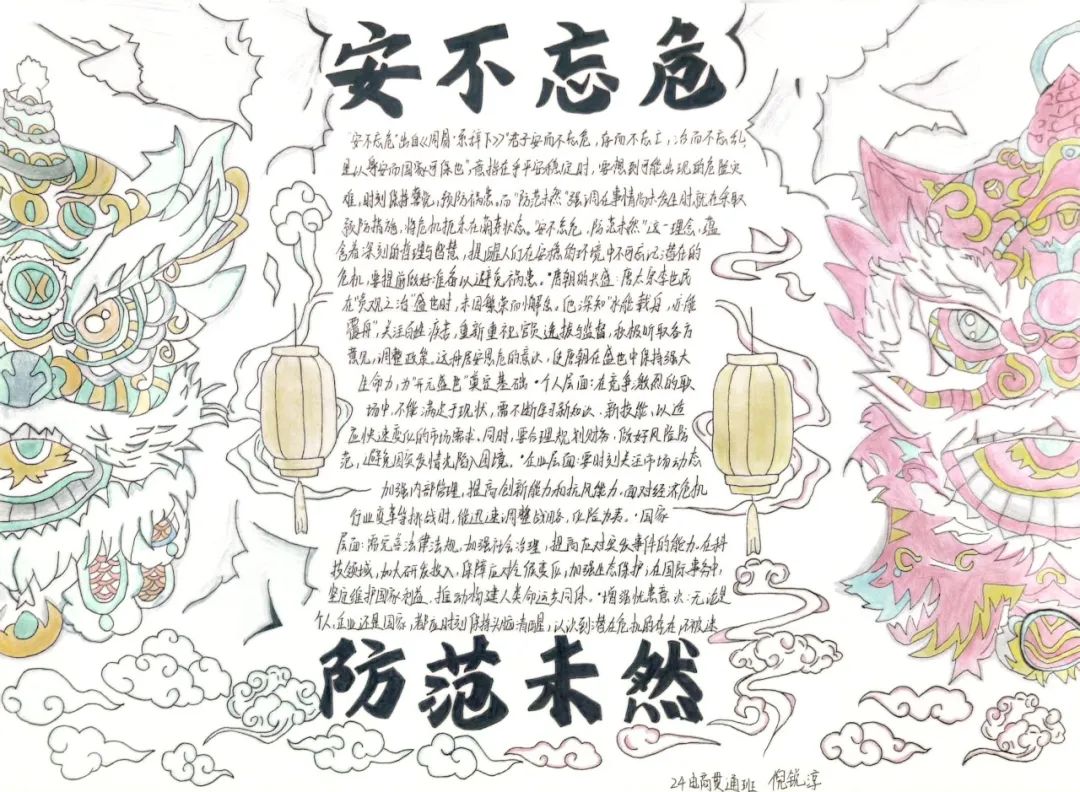 安不忘危
"安不忘危"出自《周易·系辞下》"君子安而不忘危，存而不忘亡，治而不忘乱
是以身安而国家可保也",意指在乎平安稳定时，要想到可能出现的危险灾
难，时刻保持警惕，预防祸患。而"防范未然"强调在事情尚未发生时，就在采取
预防措施，将危机扼杀在萌芽状态。"安不忘危，防范未然"这一理念，蕴
含着深刻的哲理与智慧，提醒人们在安稳的环境中不可忘记潜在的
危机，要提前做好准备以避免祸患。·唐朝的兴盛：唐太宗李世民
在"贞观之治"盛世时，未因繁荣而懈怠。他深知"水能载舟，亦能
覆舟"，关注民生疾苦，重新重视官员选拔与监督，积极听取各方
意见，调整政策。这种居安思危的意识，使唐朝在盛世中保持强大
生命力，为"开元盛世"奠定基础·个人层面：在竞争激烈的职
场中，不能满足于现状，需不断学习新知识、新技能，以适
应快速变化的市场需求。同时，要合理规划财务，做好风险防
范，避免因突发情况陷入困境。·企业层面：要时刻关注市场动态
加强内部管理，提高创新能力和抗风能力。面对经济危机
行业变革等挑战时，能迅速调整战略，化险为夷。·国家
层面：需完善法律法规。加强社会治理，提高应对突发事件的能力。在科
技领域，加大研发投入，保障应对气候变化，加强生态保护；在国际事务中，
坚定维护国家利益，推动构建人类命运共同体。·增强忧患意识：无论是
个人、企业还是国家，都应时刻保持头脑清醒，认识到潜在危机的存在，不被迷
防范未然
24电商贯通班 倪锐淳